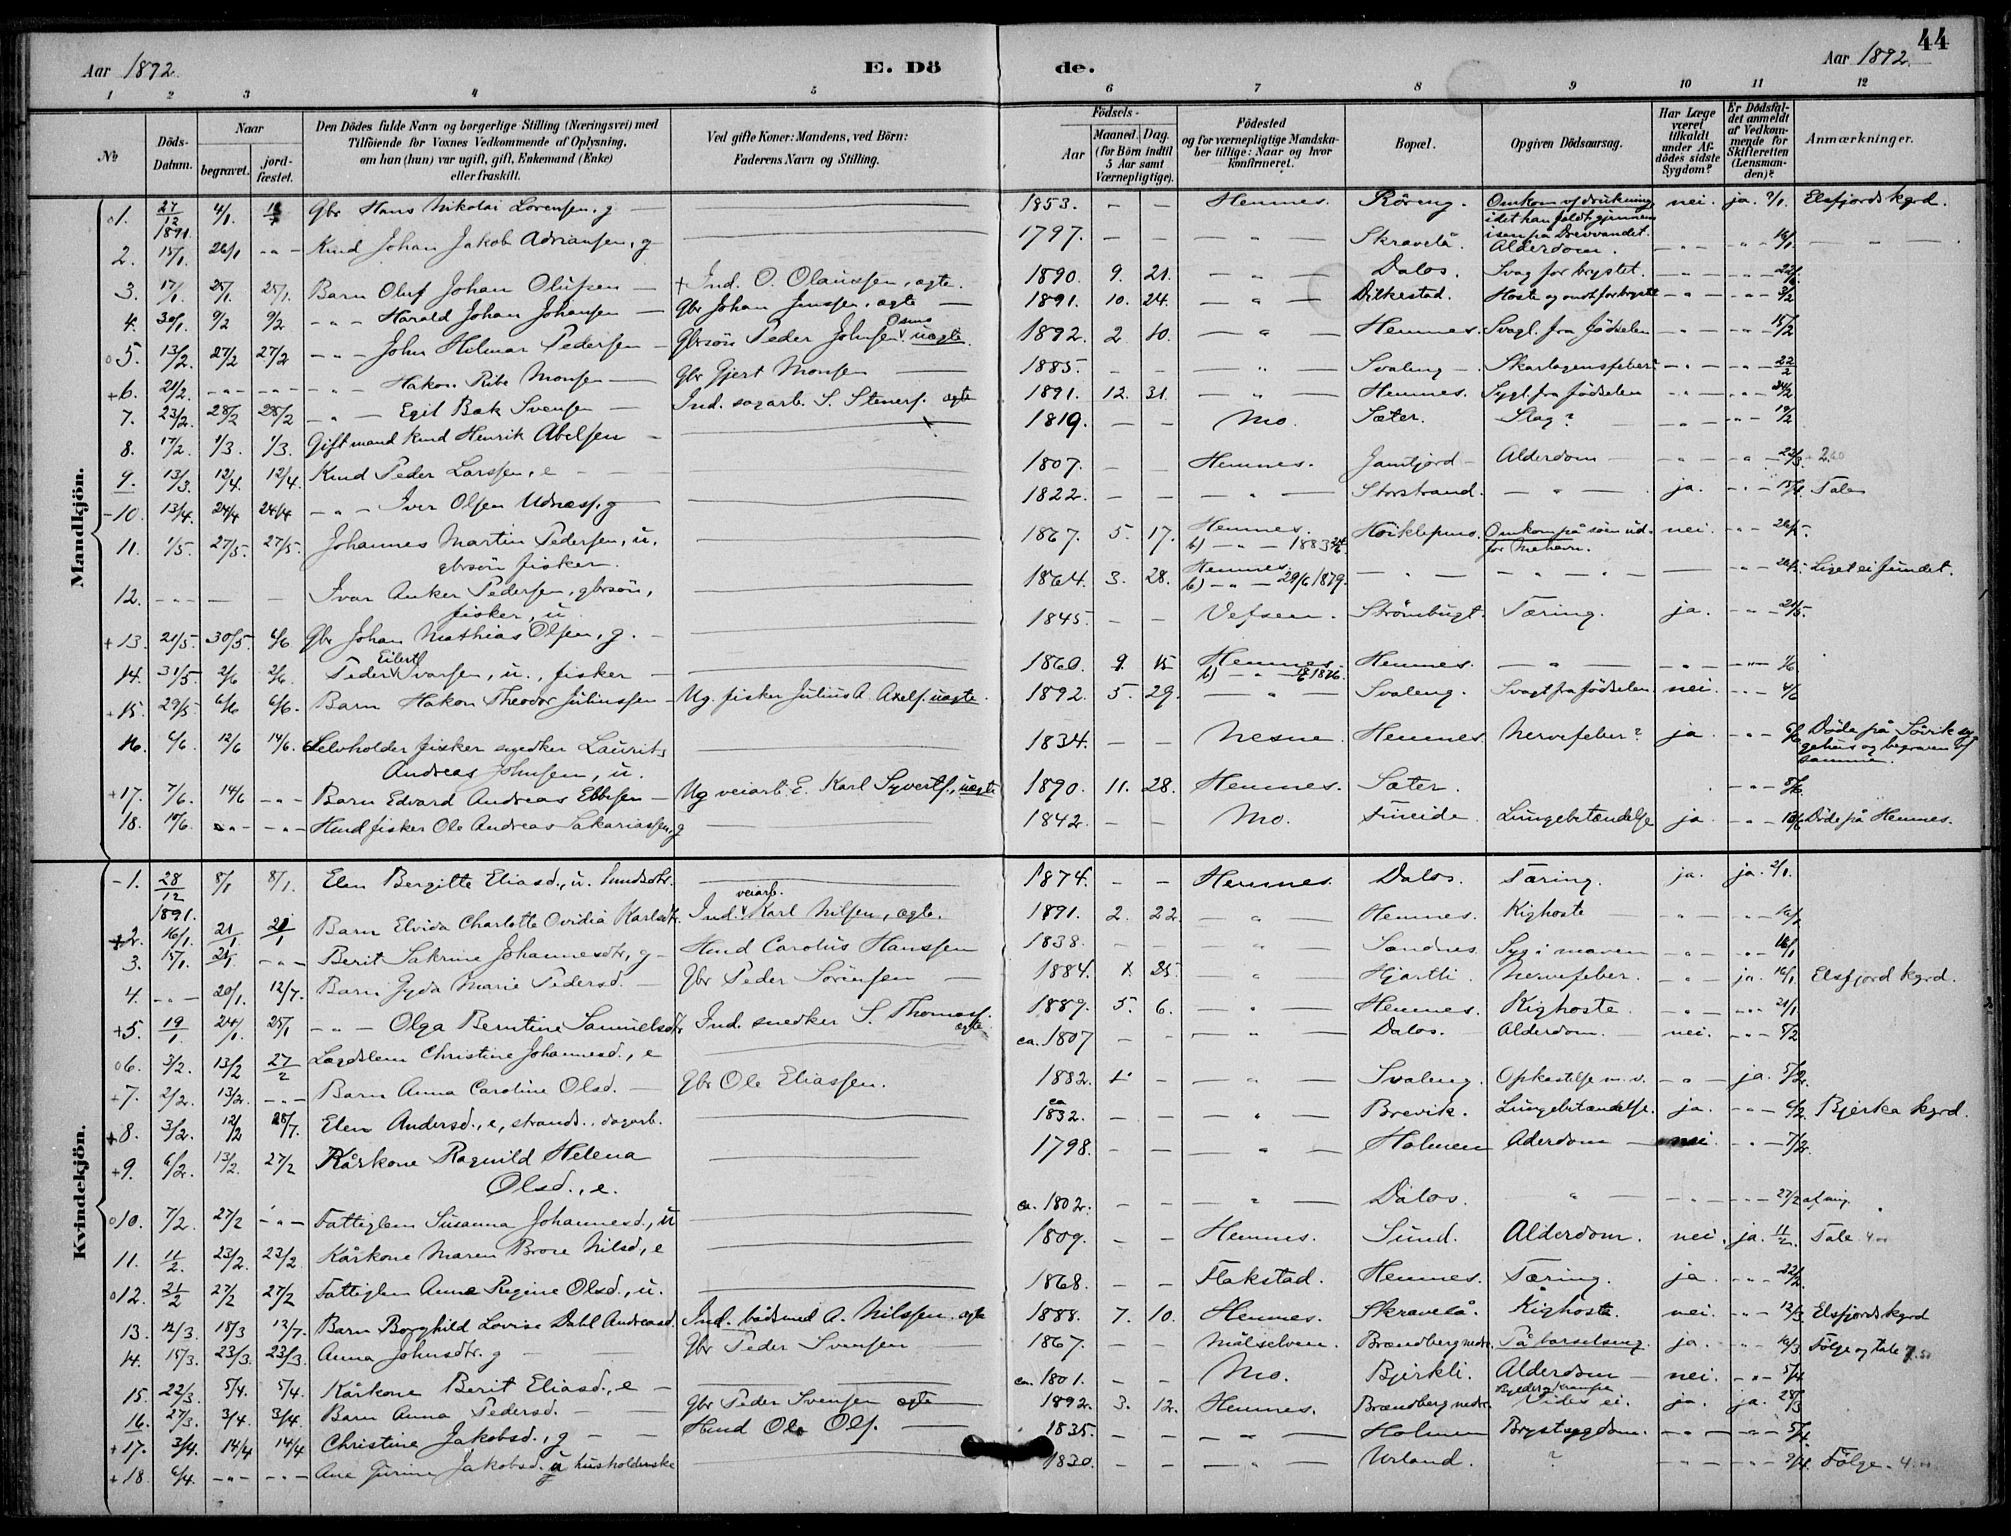 44
Aar 1892. E. Dö de. Aar 1892.
1 2 3 4 5 6 7 8 9 10 11 12
No
Döds-Datum.
Naar
begravet. jord-fæstet.
Den Dödes fulde Navn og borgerlige Stilling (Næringsvei) med
Tilföiende for Voxnes Vedkommende af Oplysning,
om han (hun) var ugift, gift, Enkemand (Enke)
eller fraskilt.
Ved gifte Koner: Mandens, ved Börn:
Faderens Navn og Stilling.
Födsels-
Aar Maaned. Dag.
(for Börn indtil
5 Aar samt
Værnepligtige).
Födested
og for værnepligtige Mandska-
ber tillige: Naar og hvor
konfirmeret.
Bopæl.
Opgiven Dödsaarsag.
Har Læge
været
tilkaldt
under Af-
dödes sidste
Sygdom?
Er Dödsfal-
det anmeldt
af Vedkom-
mende for
Skifteretten
(Lensman-
den)?
Anmærkninger.
Mandkjön.
1. 27/12 1891. 4/1. Gbr Hans Nikolai Lorensen, g — 1853. — — Hemnes. Röreng. Omkom v/ drukning idet han faldt gjennem isen på Drevvandet. nei. ja. 2/1. Elsfjords kgrd.
2. 15/1. 26/1 -„- Kund Johan Jakob Adriansen, g — 1797. — — — „ — Skravelå. Alderdom. -„- -„- 16/1
3. 17/1. 25/1. 25/1. Barn Oluf Johan Olufsen — + Ind. O. Olaussen, ægte. 1890. 9. 21. — „ — Dalos. Svag for brystet. -„- -„-
4. 30/1. 9/2 9/2 -„- Harald Johan Johansen — Gbr Johan Jenssen, ægte — 1891. 10. 24. — „ — Dilkestad. Hoste og ondt for brystet -„- -„- 3/2
5. 13/2. 27/2 27/2 -„- John Hilmar Pedersen — Gbrsön Peder Johnsen Osmo uægte. 1892. 2 10. — „ — Hemnes. Svagl. fra fødselen -„- -„- 15/2
+6. 21/2. -„- -„- -„- Hakon Ribe Monsen — Gbr Gjert Monsen — 1885. — — — „ — Svaleng — Skarlagensfeber -„- -„- 22/2
7. 23/2. 28/2 28/2 -„- Egil Bæk Svensen — Ind. sagarb. S. Steners. ægte 1891. 12. 31. — „ — Hemnes. Sygl. fra fødselen -„- -„- 24/2
8. 17/2. 1/3. 1/3. Gift mand kund Henrik Abelsen — 1819. — — Mo. Sæter. Slag? -„- -„- 19/2
9. 13/3. 12/4. 12/4. Kund Peder Larssen, e — — 1807. — — Hemnes. Jamtjord — Alderdom — -„- -„- 22/3
-10. 13/4. 24/4 24/4 -„- Iver Olsen Udnæss, g — 1822. — — — „ — Storstrand. — „ — ja. -„- 15/4. Tale
11. 1/5. 27/5. 27/5. Johannes Martin Pedersen, u. gbrsön fisker. — 1867. 5. 17. Hemnes. b) -„- 1883 Omkom på söen ud-for Mehavn. nei. -„- 26/5.
12. -„- — — Ivar Anker Pedersen, gbrsön, fisker, u — 1864. 3. 28. Hemnes. b) -„- 29/6 1879. — „ — — „ — -„- 26/5. Liget ei fundet.
+13. 21/5. 30/5. 6/6 Gbr Johan Mathias Olsen, g. — 1845. — — Vefsen. Strömbugt. Tæring. ja. -„- 21/5.
14. 31/5 2/6 2/6. Peder Eilert Ivarsen, u., fisker — 1860. 9. 15. Hemnes. b) -„- 1876. Hemnes. — „ — -„- -„- 1/6
+15. 29/5 6/6 6/6. Barn Hakon Theodor Juliussen — Ug. fisker Julius A. Axels. uægte. 1892. 5. 29. — „ — Svaleng. Svagl fra fødselen. nei. -„- 4/6
16. 6/6. 12/6 14/6. Selvholder fisker snedker Laurits Andreas Johnsen, u. — 1834. — — Nesne Hemnes. Nervefeber? ja -„- 6/6 Döde på Sövik sy-gehus og begraven af samme.
+17. 7/6. 14/6 -„- Barn Edvard Andreas Ebbesen — Ug veiarb. E. Karl Syverts., uægte 1890. 11. 28. Hemnes. Sæter. -„- 8/6.
18. 10/6. -„- -„- Hmd fisker Ole Andreas Sakariassen, g — 1842. — — Mo. Fineide Lungebetændelse ja. -„- 10/6 Döde på Hemnes.
Kvindekjön.
-1. 28/12 1891. 8/1 8/1. Elen Bergitte Eliasd., u. — 1874. — — Hemnes. Dalos. Tæring. ja. ja. 2/1.
2. 16/1. 21/1 21/1 Barn Elvida Charlotte Ovidia Karlsdt. Ind. veiarb. Karl Nilsen, ægte. 1891. 2. 22. — „ — Hemnes. Kighoste -„- -„- 16/1
3. 15/1. 21/1 -„- Berit Sakrine Johannesdtr, g — Hmd Carolus Hanssen 1838. — — — „ — Sandnes. Syg i maven -„- -„- 18/1
4. -„- 20/1. 12/7. Barn Gyda Marie Pedersd. — Gbr Peder Sörensen — 1884. 1. 25. — „ — Hjartli. Nervefeber. -„- ja. 16/1 Elsfjord kgrd.
+5 19/1 24/1 25/1 -„- Olga Berntine Samuelsdtr Ind. snedker S. Thomass. ægte 1889. 5. 6. — „ — Hemnes. Kighoste. -„- -„- 21/1
06. 3/2. 13/2 27/2 Lægdslem Christine Johannesd., e — ca. 1807 — — — „ — Dalos. Alderdom. nei. -„- 5/2
+7. 2/2. 13/2. -„- Barn Anna Caroline Olsd. — Gbr Ole Eliassen. 1882. — „ — Svaleng. Opkastelse m. v. -„- ja. 5/2.
+8. 3/2. 12/2 28/7. Elen Andersd., e, strands., dagarb. — ca 1832. — — — „ — Brevik. Lungebetændelse. ja. -„- 6/2. Bjerka kgrd.
+9. 6/2. 13/2. 27/2 Kårkone Ragnild Helena Olsd., e. — 1798. — — — „ — Holmen Aderdom — nei. -„- 7/2.
010. 7/2. 27/2 -„- Fattiglem Susanna Johannesd., u — ca. 1802. — — — „ — Dalos. — „ — -„- -„- 27/2
11. 11/2. 23/2. 23/2. Kårkone Maren Brose Nilsd., e — 1809. — — Hemnes. Sund. Alderdom. nei. ja. 11/2. Tale
012. 21/2 27/2 27/2 Fattiglem Anne Regine Olsd., u. — 1868. — — Flakstad. Hemnes. Tæring. ja -„- 22/2.
13. 12/3. 18/3 13/7. Barn Borghild Lovise Dahl Andreasd. Ind. bådsmd A. Nilssen. ægte 1888. 7. 10. Hemnes. Skravelå. Kighoste. nei. -„- 12/3 Elsfjords kgrd
14. 15/3. 23/3. 23/3. Anna Johnsdtr. g — — Gbr Peder Svensen — 1867. — — Målselven. Brændberg nedre. På barselseng. ja. -„- 16/3 Følge og tale
15. 22/3. 5/4. 5/4. Kårkone Berit Eliasd., e — ca. 1801. — — Mo. Bjerkli. Alderdom — nei. -„- 5/4
16. 27/3. 3/4. 3/4. Barn Anna Pedersd. — Gbr Peder Svensen ægte 1892. 3. 12. Hemnes. Brændberg nedre. Vides ei. ja. ja. 28/3
+17. 3/4. 14/4 14/4 Christine Jakobsd., g — — Hmd Ole Ols. — 1835. — — — „ — Holmen Brystsygdom. -„- -„- 5/4
+18 6/4. -„- -„- Ane Gurine Jakobsd. u husholderske — 1830. — — — „ — Urland. ? -„- -„- 9/4. Følge.